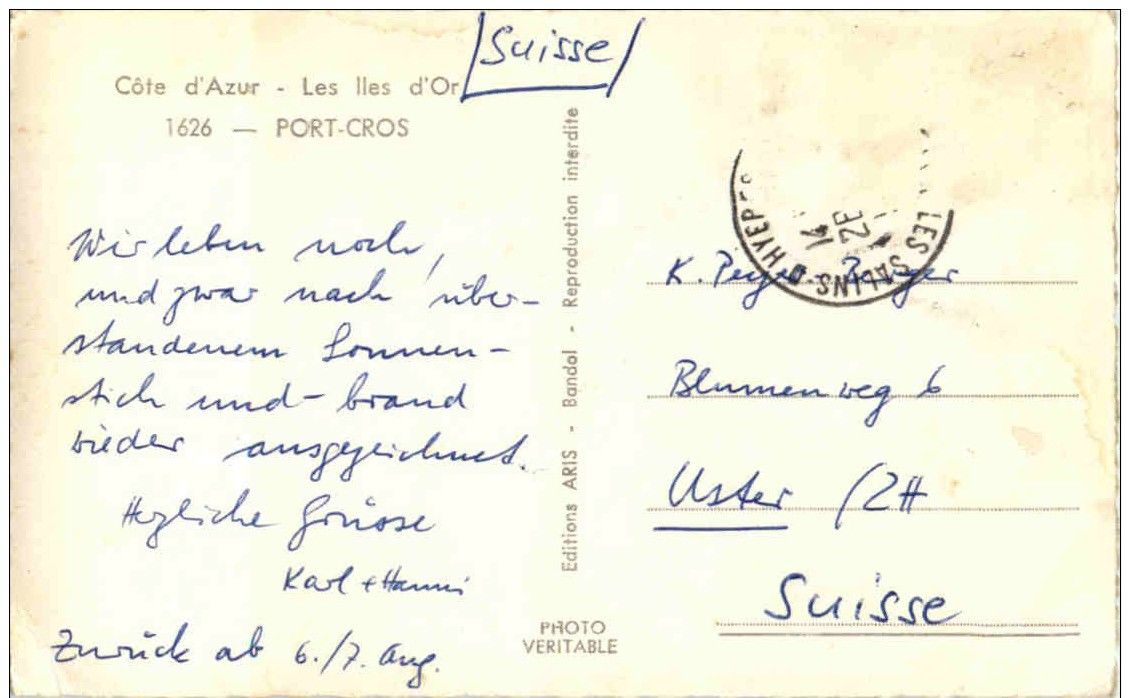 Suisse
Côte d'Azur - Les Iles d'Or
1626 — PORT-CROS
Wir leben noch,
und zwar nach über-
standenem Sonnen-
stich und -brand
wieder ausgezeichnet.
Herzliche Grüsse
Karl + Hanni
Zurück ab 6./7. Aug.
Editions ARIS - Bandol - Reproduction interdite
PHOTO
VERITABLE
LES SALINS-D'HYER
14
K.
Blumenweg 6
Uster /ZH
Suisse